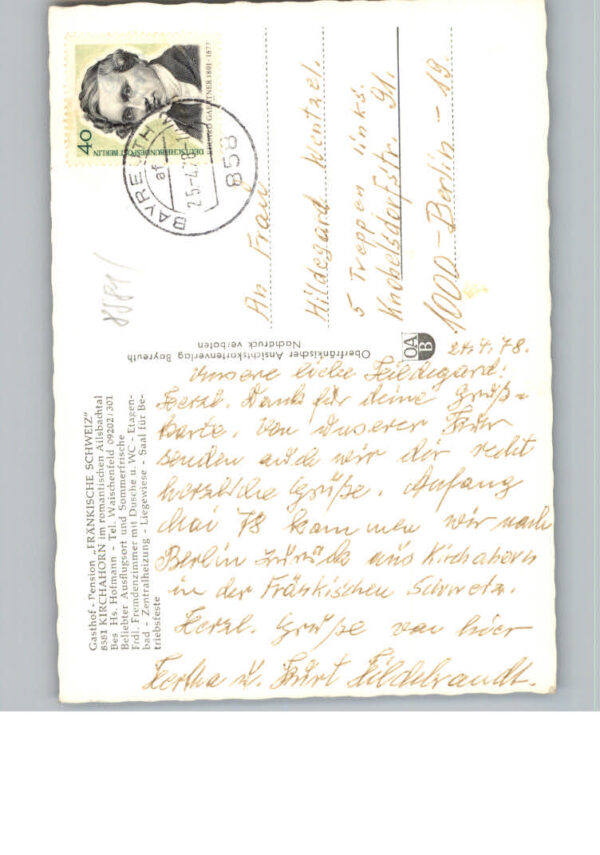 DEUTSCHE BUNDESPOST BERLIN
40
EDUARD GAERTNER 1801-1877
BAYREUTH
25.-4.78
858
8581
An Frau
Hildegard Wentzel.
5 Treppen links.
Knobelsdorfstr. 91.
1000-Berlin-19.
Oberfränkischer Ansichtskartenverlag Bayreuth
Nachdruck verboten
OA
B
Gasthof - Pension „FRÄNKISCHE SCHWEIZ"
8581 KIRCHAHORN im romantischen Ailsbachtal
Bes Hs. Hofmann - Tel. Waischenfeld 09202/301
Beliebter Ausflugsort und Sommerfrische
Frdl. Fremdenzimmer mit Dusche u. WC - Etagen-
bad - Zentralheizung - Liegewiese - Saal für Be-
triebsfeste
24.4.78.
Unsere liebe Hildegard!
Herzl. Dank für deine Gruß=
karte. Von unserer
senden auch wir dir recht
herzliche Grüße. Anfang
Mai 78 kommen wir nach
Berlin zurück aus Kirchahorn
in der Fräskischen Schweiz.
Herzl. Grüße von hier
Hertha u. Kurt Hildebrandt.